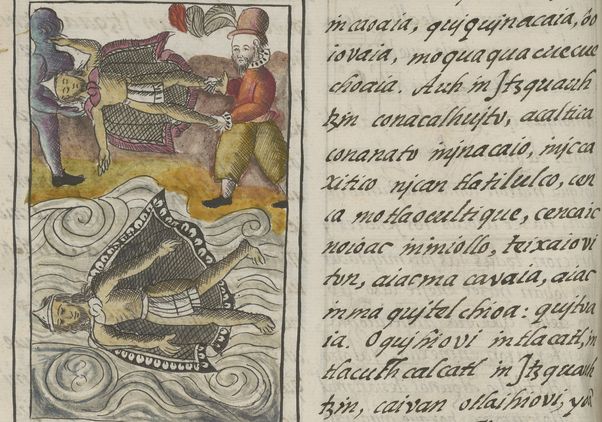 incaoaia, quiquinacaia, oo
iovaia, moquaquacuecue
choaia. Auh in Jtzquauh
tzin conacalhuito, acaltica
conanato injnacaio, injcca
xitico njcan tlatilulco, cen
ca motlaocultique, cencaic
noioac inmiollo, teixaiovi
tvn, aiacma cavaia, aiac
inma quitelchioa: quitva
ia. Oquihiovi intlacatl, in
tlacuchcalcatl in Jtzquauh
tzin, caivan otlaihiovi, yoā